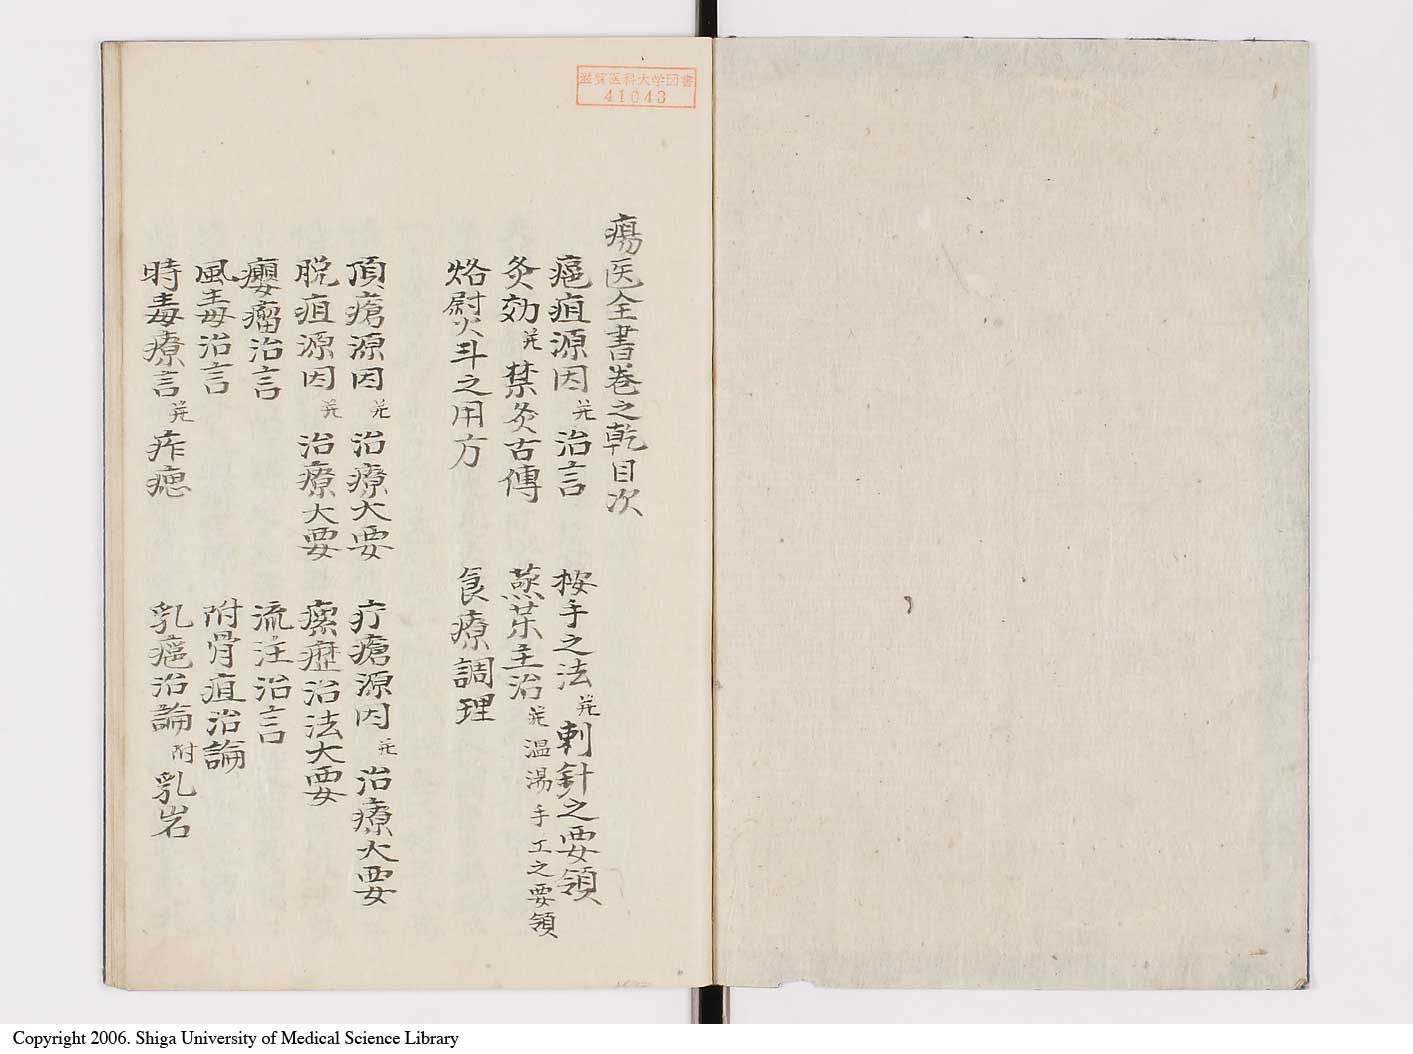 滋賀医科大学図書
41043
瘍医全書巻之乾目次
癰疽源因并治言 按手之法并刺針之要領
灸効并禁灸古傳 蒸茱主治并温湯手工之要領
烙熨火斗之用方 食療調理
頂瘡源因并治療大要 疔瘡源因并治療大要
脱疽源因并治療大要 瘰癧治法大要
癭瘤治言 流注治言
風毒治言 附骨疽治論
時毒療言并痄癋 乳癰治論附乳岩
Copyright 2006. Shiga University of Medical Science Library